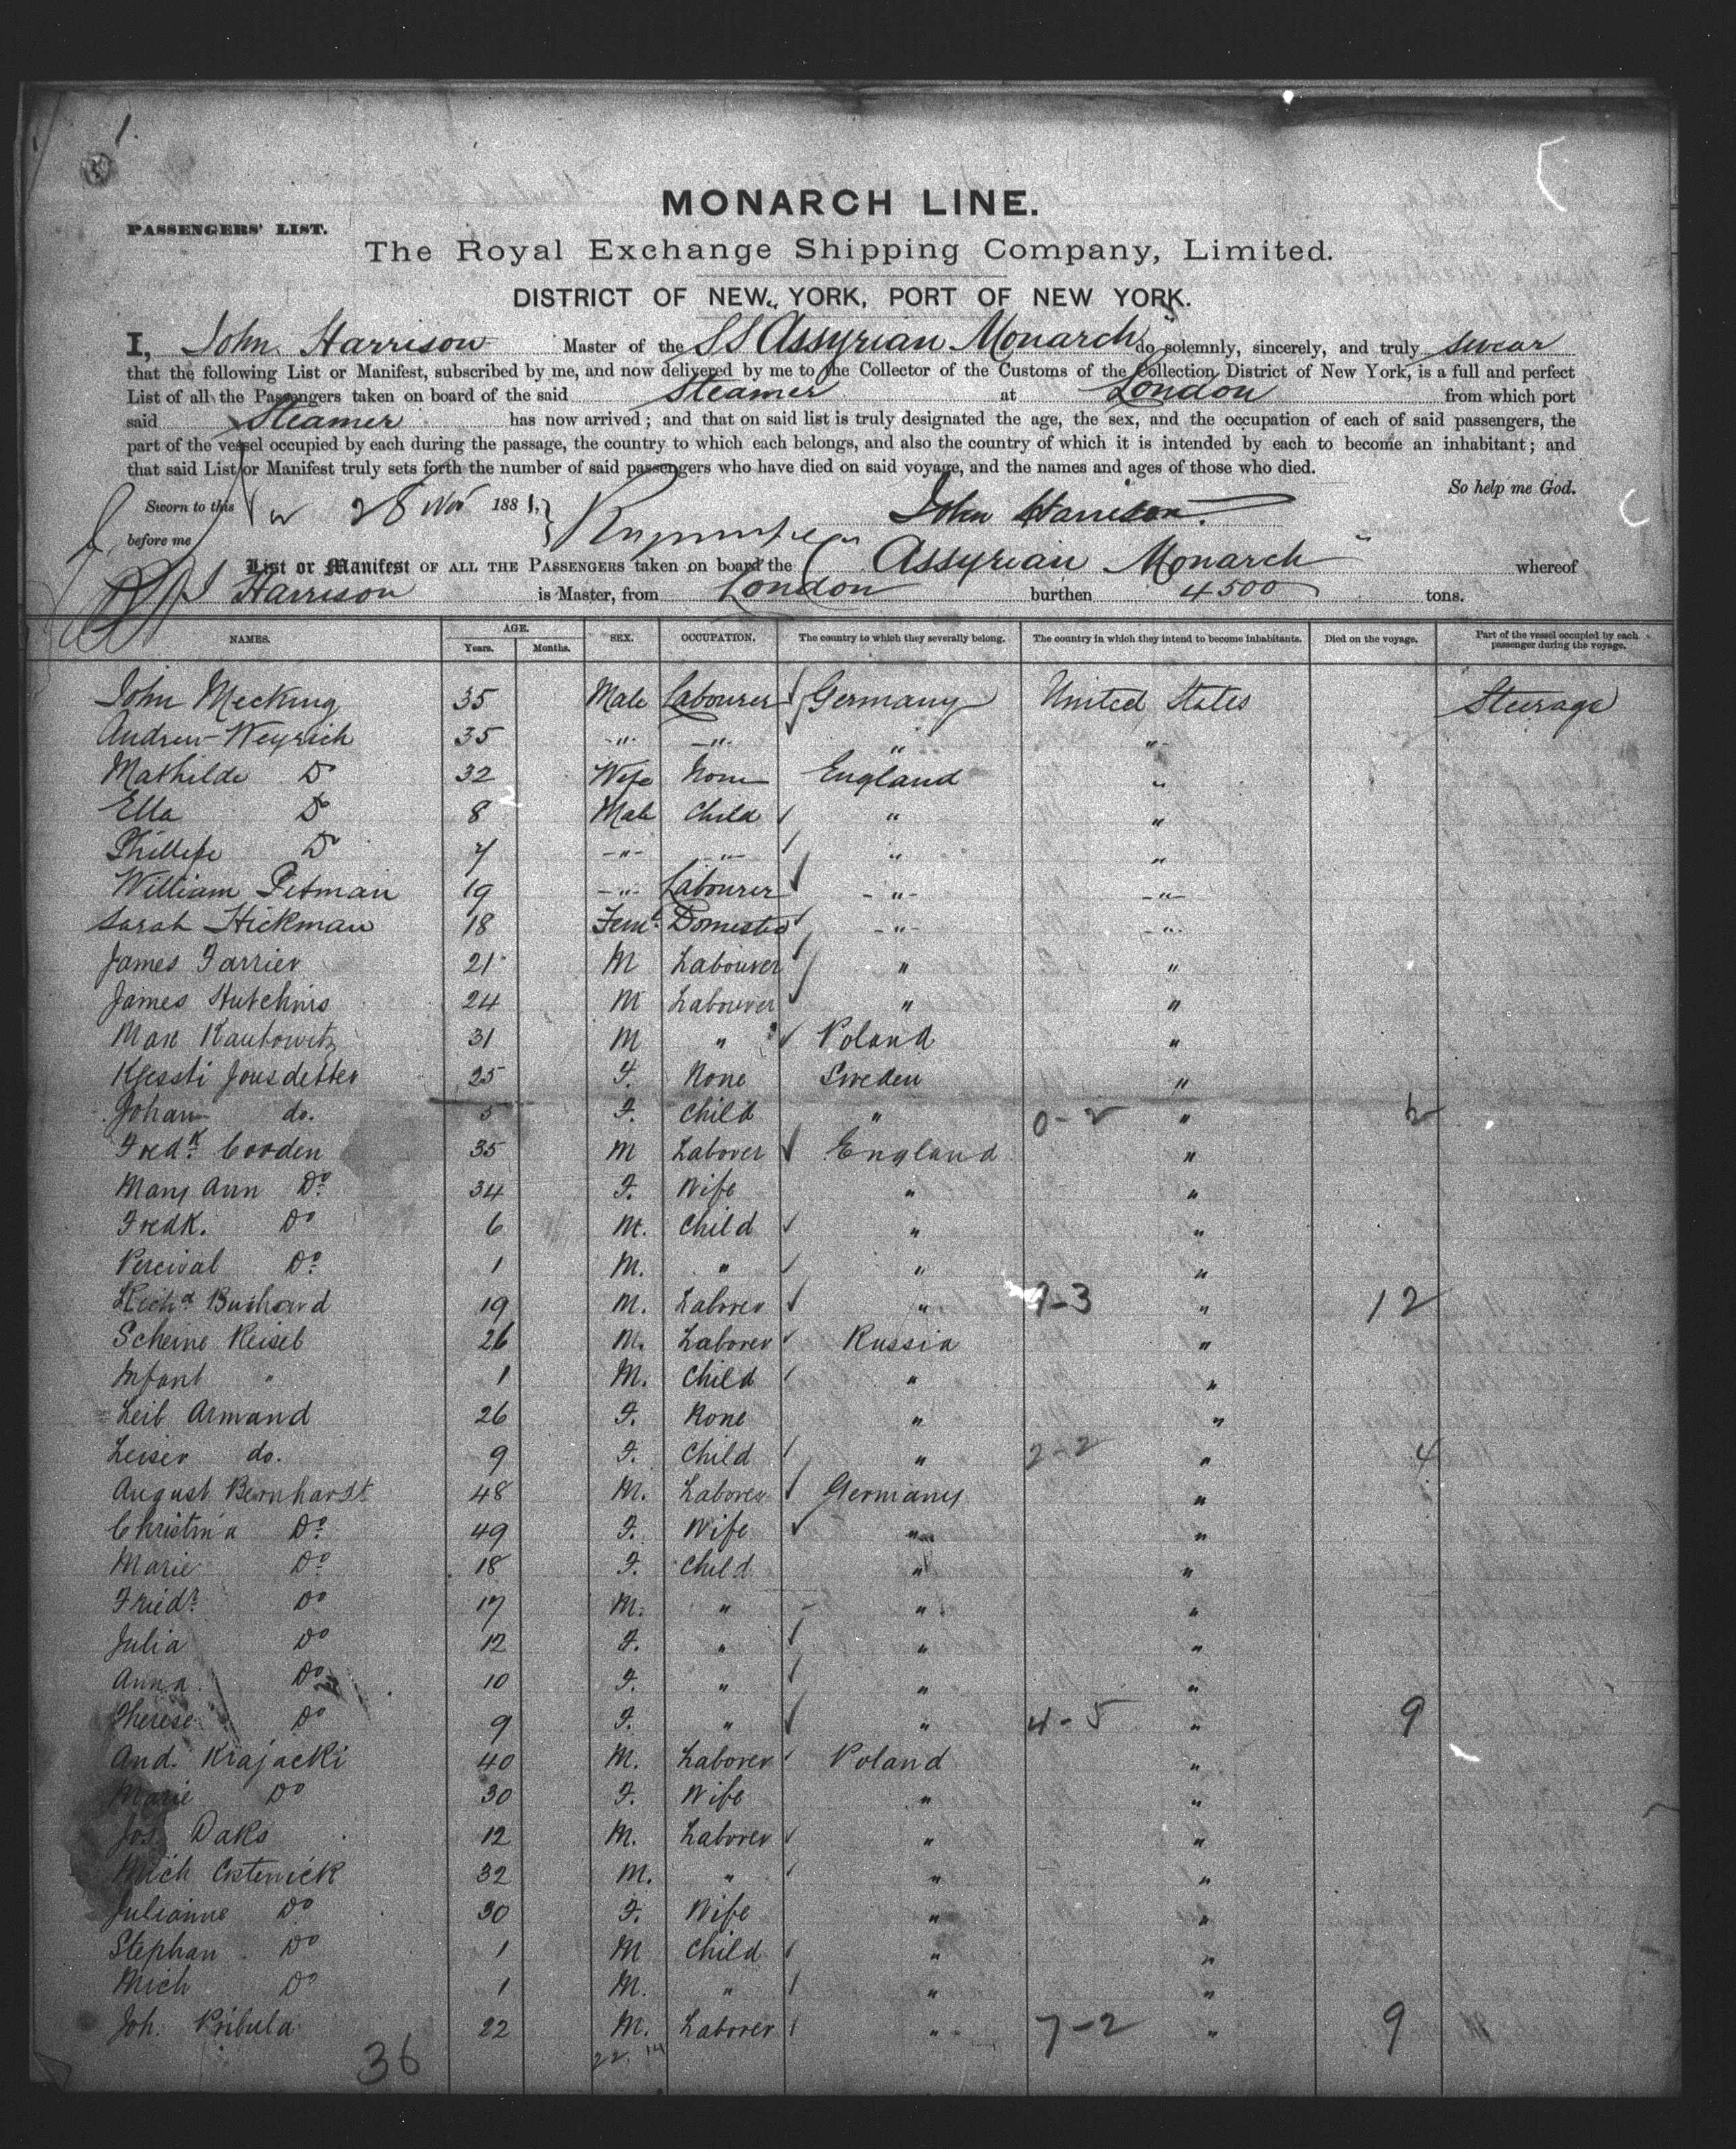 1.
MONARCH LINE.
PASSENGERS' LIST.
The Royal Exchange Shipping Company, Limited.
DISTRICT OF NEW YORK, PORT OF NEW YORK.
I, John Harrison Master of the SS Assyrian Monarch do solemnly, sincerely, and truly swear
that the following List or Manifest, subscribed by me, and now delivered by me to the Collector of the Customs of the Collection District of New York, is a full and perfect
List of all the Passengers taken on board of the said Steamer at London from which port
said Steamer has now arrived; and that on said list is truly designated the age, the sex, and the occupation of each of said passengers, the
part of the vessel occupied by each during the passage, the country to which each belongs, and also the country of which it is intended by each to become an inhabitant; and
that said List or Manifest truly sets forth the number of said passengers who have died on said voyage, and the names and ages of those who died.
So help me God.
Sworn to this 28 Nov 1881,
John Harrison.
before me
List or Manifest OF ALL THE PASSENGERS taken on board the Assyrian Monarch whereof
J Harrison is Master, from London burthen 4500 tons.
NAMES. AGE. Years. Months. SEX. OCCUPATION. The country to which they severally belong. The country in which they intend to become inhabitants. Died on the voyage. Part of the vessel occupied by each passenger during the voyage.
John Mecking 35 Male Labourer Germany United States Steerage
Andrew Weyrich 35 " " " "
Mathilde Do 32 Wife None England "
Ella Do 8 Male Child " "
Phillipe Do 7 " " " "
William Pitman 19 " Labourer " "
Sarah Hickman 18 Feml Domestic " "
James Farrier 21 M Labourer " "
James Hutchins 24 M Labourer " "
Max 31 M " Poland "
25 F. None Sweden "
Johan do. 5 F. Child " 0-2 " 2
Fredk. Cooden 35 M Laborer England "
Mary Ann Do 34 F. Wife " "
Fredk. Do 6 M. Child " "
Percival Do 1 M. " " "
Richd Burhard 19 M. Laborer " 9-3 " 12
Scheine Reiseb 26 M. Laborer Russia "
Infant " 1 M. Child " "
Leib Armand 26 F. None " "
Leiser do. 9 F. Child " 2-2 " 4
August Bernhardt 48 M. Laborer Germany "
Christina Do 49 F. Wife " "
Marie Do 18 F. Child " "
Friedr. Do 17 M. " " "
Julia Do 12 F. " " "
Anna Do 10 F. " " "
Therese Do 9 F. " " 4-5 " 9
And. Krajacki 40 M. Laborer Poland "
Marie Do 30 F. Wife " "
Jos. Daks 12 M. Laborer " "
Mich 32 M. " " "
Julianne Do 30 F. Wife " "
Stephan Do 1 M Child " "
Mich Do 1 M. " " "
Joh. Pribula 22 M. Laborer " 7-2 " 9
36 22 14